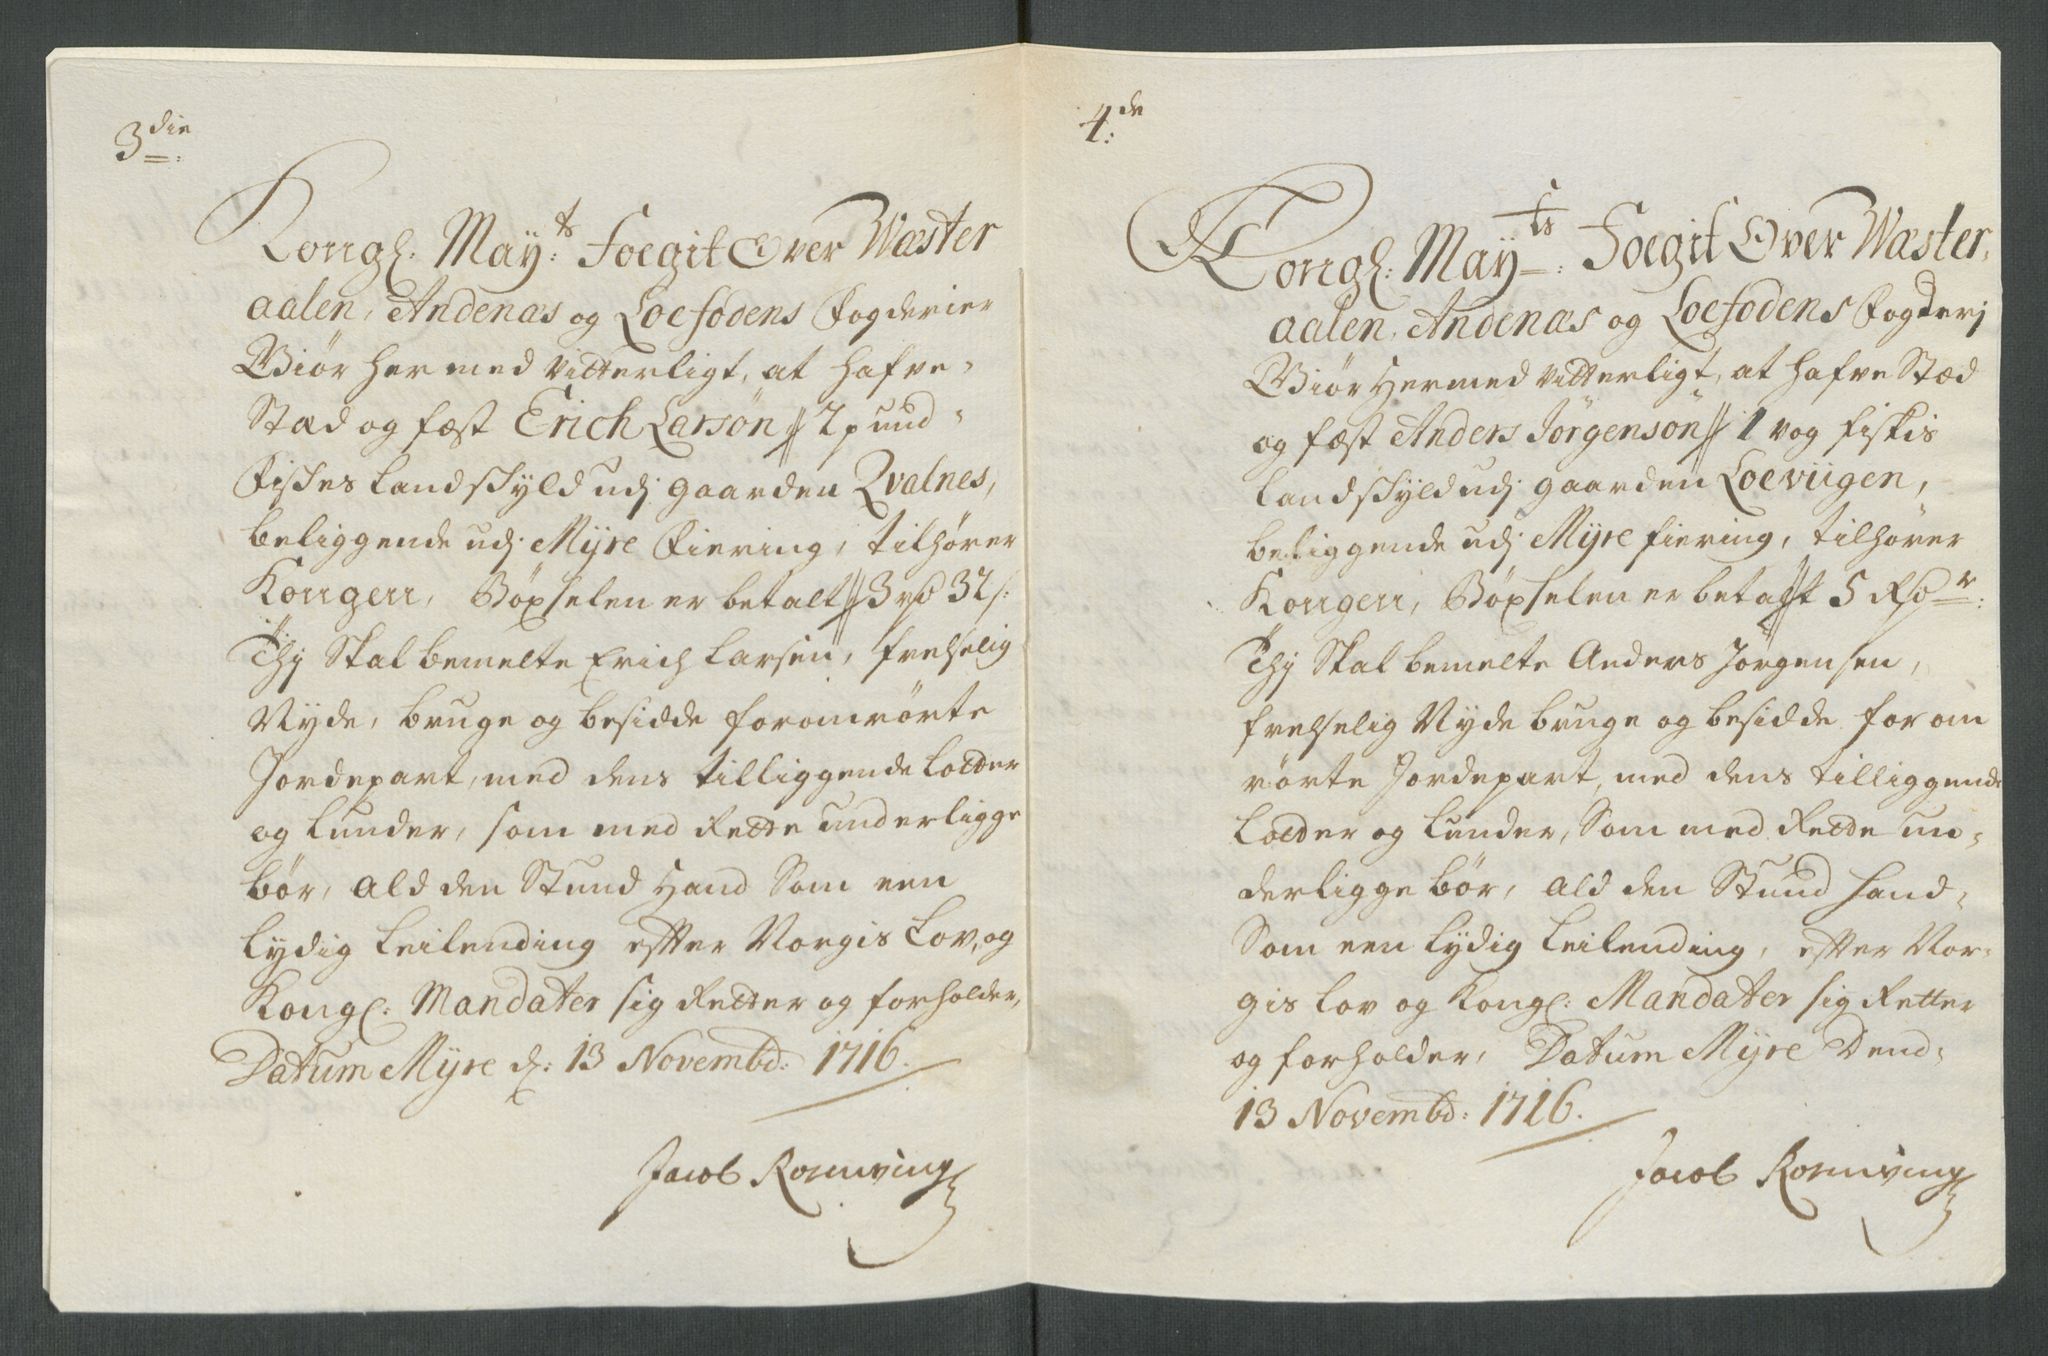 3die
Kongl: May:ts Foegit Over Wæster
aalen, Andenæs og Loefodens Fogderier
Giør hermed vitterligt, at hafve-
Stæd og fæst Erich Larsøn // 2 pund-
Fiskes Landskyld udj gaarden Qvalnes,
beliggende udj Myre Fiering, tilhører
Kongen, Böxselen er betalt // 3 rd 32 s:
Thj Skal bemelte Erich Larsen, frelselig
Nyde, bruge og besidde foromrörte
Jordepart, med dens tilliggende Lotter
og Lunder, som med Rette underligge
bör, ald den Stund Hand Som een
lydig Leilending efter Norgis Lov, og
Kongl: Mandater sig Retter og forholder,
Datum Myre d: 13 Novembr: 1716.
Jacob
4:de
Kongl: May:ts Foegit Over Wæster,
aalen, Andenæs og Loefodens Fogderj
Giør Hermed vitterligt, at hafve Stæd
og fæst Anders Jörgensøn // 1 vog fiskis
Landskyld udj gaarden Loeviigen,
beliggende udj Myre fiering, tilhører
Kongen, Böxselen er betalt 5 Rdr:
Thj Skal bemelte Anders Jörgensen,
frelselig Nyde bruge og besidde for om
rörte Jordepart, med dens tilliggende
Lotter og Lunder, Som med Rette un-
derligge bör, ald den Stund hand-
Som een lydig Leilending, efter Nor-
gis Lov og Kongl: Mandater sig Retter
og forholder, Datum Myre Dend-
13 Novembr: 1716.
Jacob